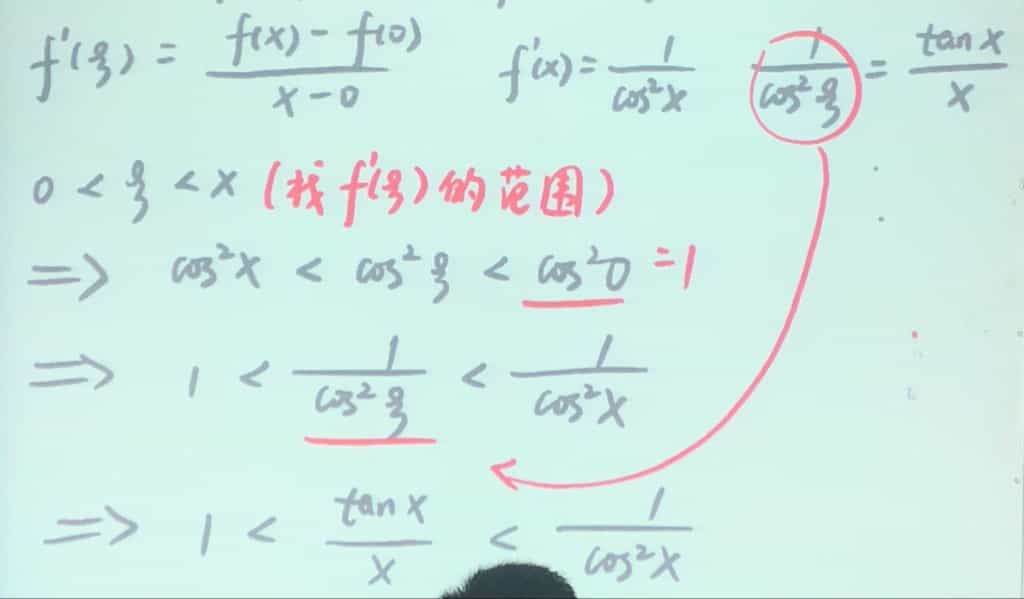 f'(ξ) = \frac{f(x) - f(0)}{x - 0} f'(x) = \frac{1}{cos²x} \frac{1}{cos²ξ} = \frac{tan x}{x}
0 < ξ < x (找 f'(ξ) 的范围)
=> cos²x < cos²ξ < cos²0 = 1
=> 1 < \frac{1}{cos²ξ} < \frac{1}{cos²x}
=> 1 < \frac{tan x}{x} < \frac{1}{cos²x}